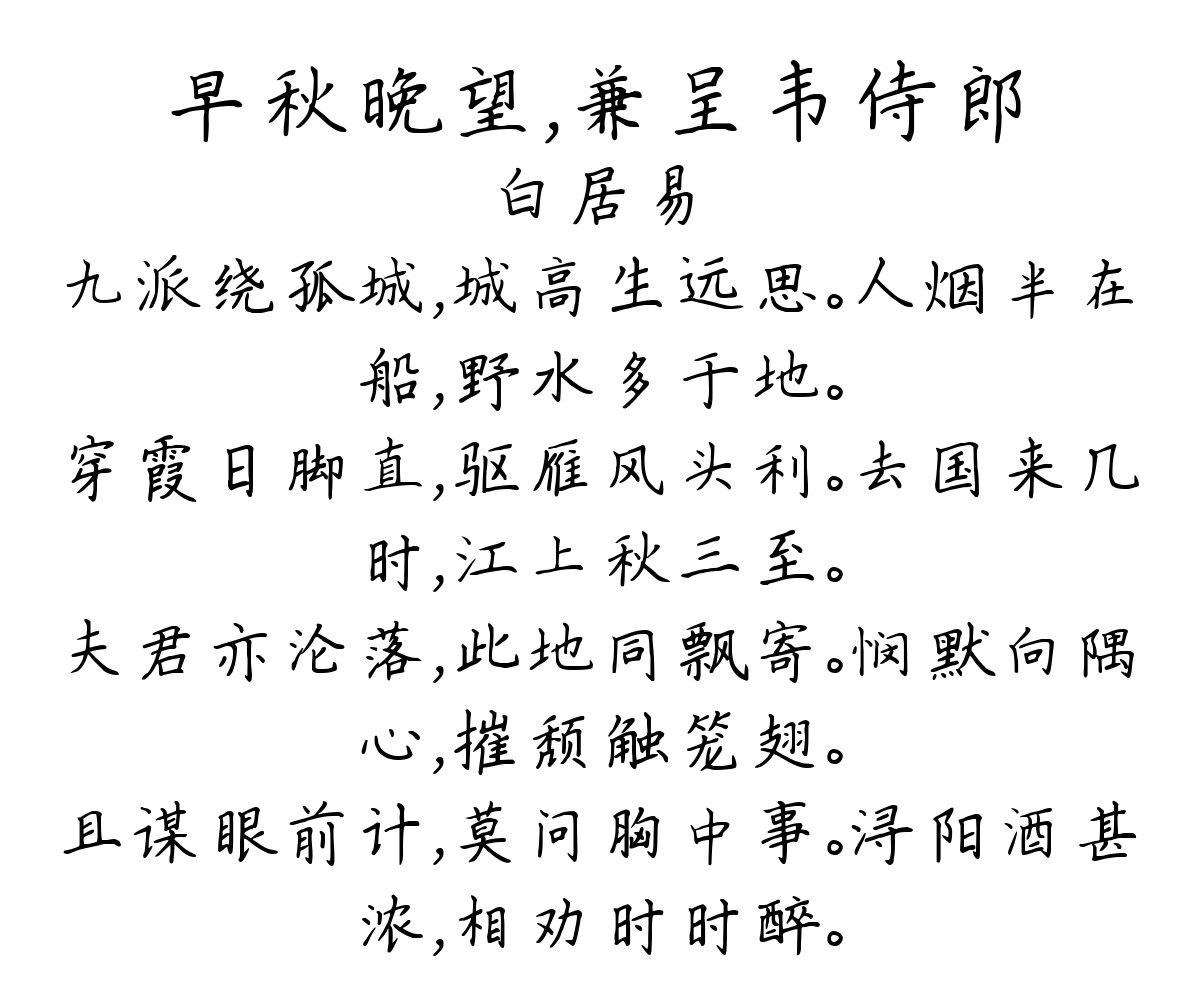 早秋晚望,兼呈韦侍郎
白居易
九派绕孤城,城高生远思。人烟半在
船,野水多于地。
穿霞日脚直,驱雁风头利。去国来几
时,江上秋三至。
夫君亦沦落,此地同飘寄。悯默向隅
心,摧颓触笼翅。
且谋眼前计,莫问胸中事。浔阳酒甚
浓,相劝时时醉。